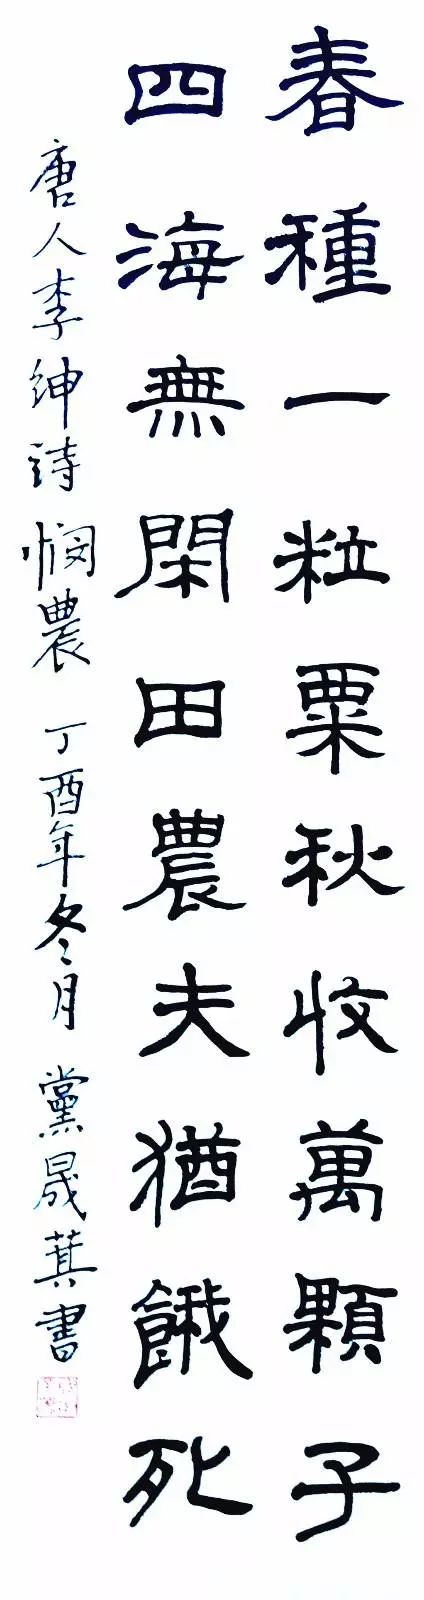 春種一粒粟秋收萬顆子
四海無閑田農夫猶餓死
唐人李紳詩憫農丁酉年冬月黨晟萁書